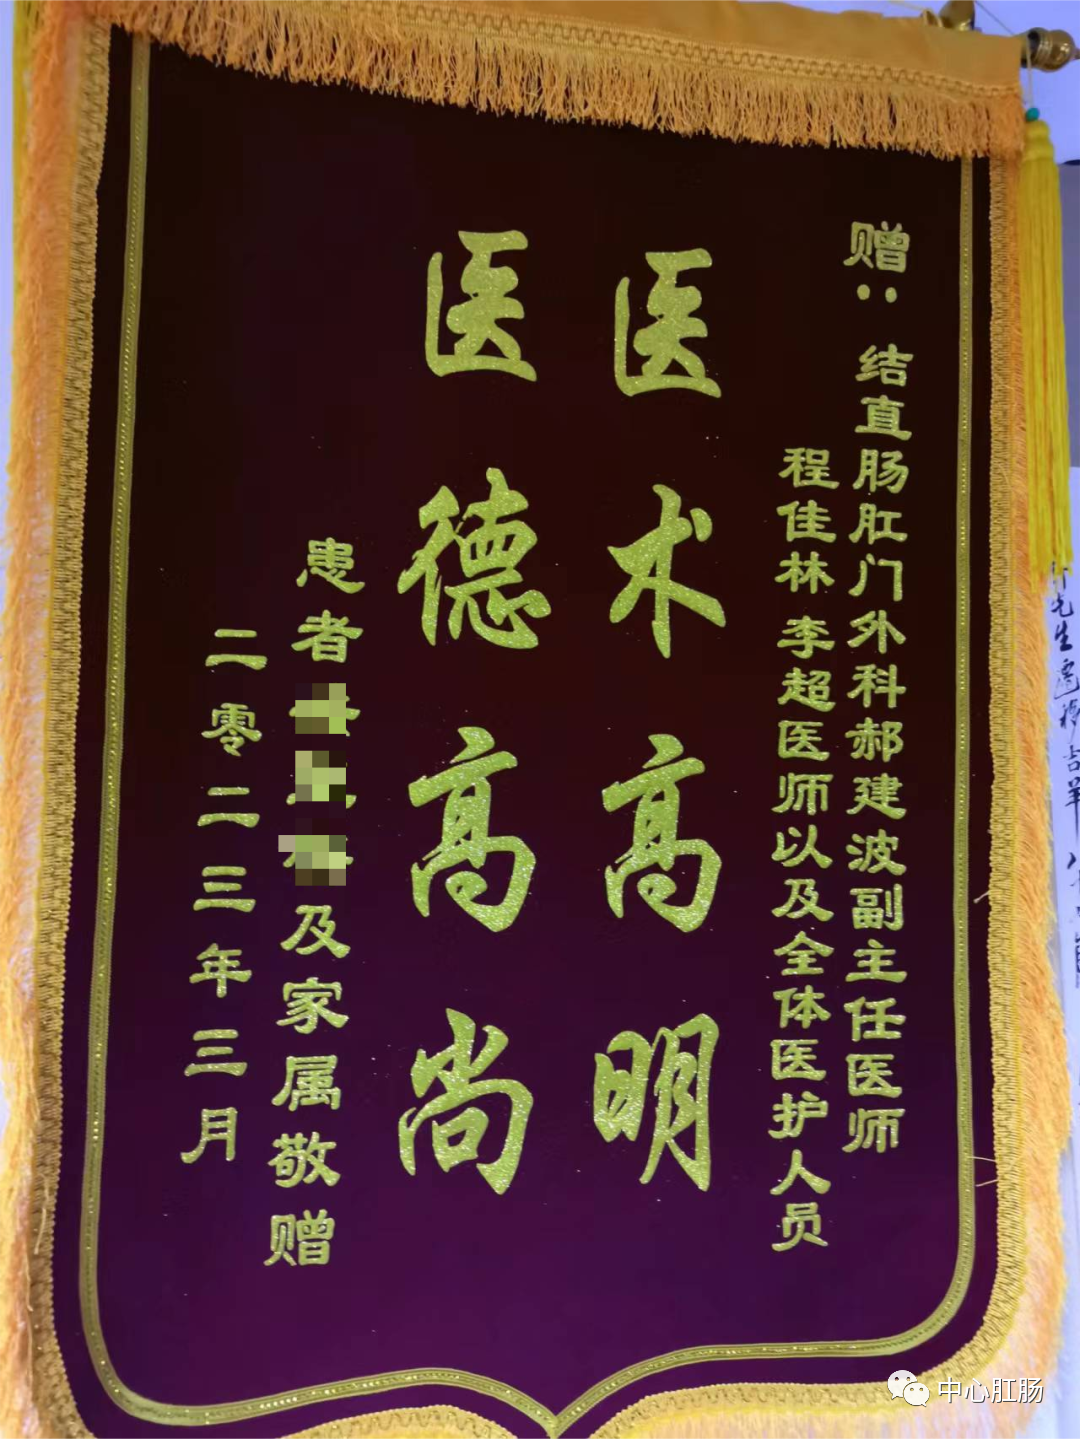 赠：结直肠肛门外科郝建波副主任医师
程佳林 李超医师以及全体医护人员
医术高明
医德高尚
患者
及家属敬赠
二零二三年三月
中心肛肠